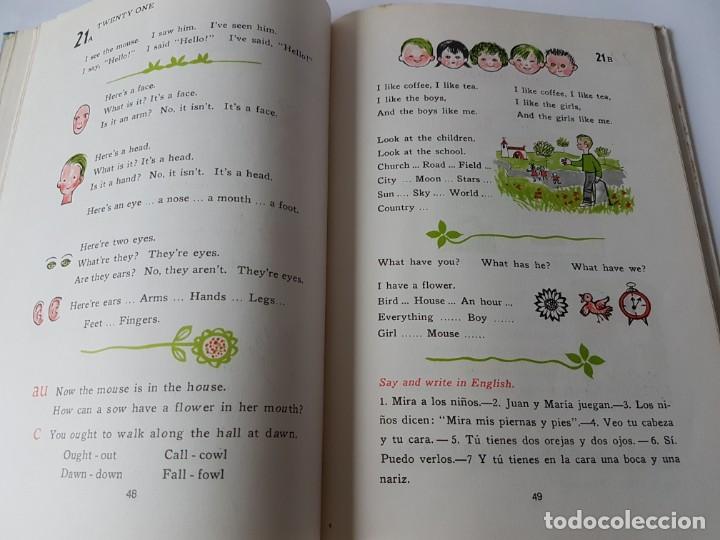 21A TWENTY ONE
I see the mouse. I saw him. I've seen him.
I say, "Hello!" I said "Hello!" I've said, "Hello!"
Here's a face.
What is it? It's a face.
Is it an arm? No, it isn't. It's a face.
Here's a head.
What is it? It's a head.
Is it a hand? No, it isn't. It's a head.
Here's an eye ... a nose ... a mouth ... a foot.
Here're two eyes.
What're they? They're eyes.
Are they ears? No, they aren't. They're eyes.
Here're ears ... Arms ... Hands ... Legs ...
Feet ... Fingers.
au Now the mouse is in the house.
How can a sow have a flower in her mouth?
C You ought to walk along the hall at dawn.
Ought - out Call - cowl
Dawn - down Fall - fowl
48
21 B
I like coffee, I like tea,
I like the boys,
And the boys like me.
I like coffee, I like tea,
I like the girls,
And the girls like me.
Look at the children.
Look at the school.
Church ... Road ... Field ...
City ... Moon ... Stars ...
Sun ... Sky ... World ...
Country ...
What have you? What has he? What have we?
I have a flower.
Bird ... House ... An hour ...
Everything ...... Boy ......
Girl ...... Mouse ......
Say and write in English.
1. Mira a los niños.—2. Juan y María juegan.—3. Los ni-
ños dicen: "Mira mis piernas y pies".—4. Veo tu cabeza
y tu cara. — 5. Tú tienes dos orejas y dos ojos. — 6. Sí.
Puedo verlos.—7 Y tú tienes en la cara una boca y una
nariz.
49
todocoleccion
todocoleccion.net